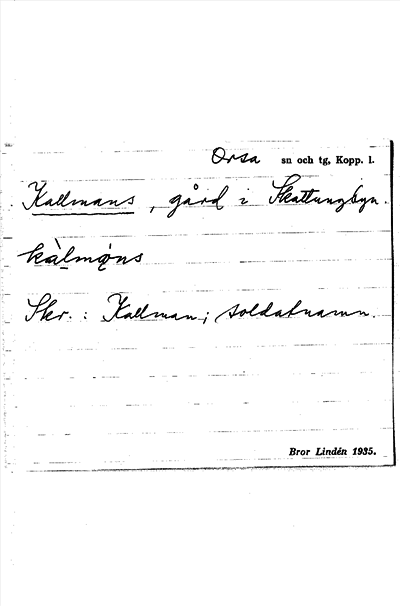 Orsa sn och tg, Kopp. l.
Kallmans, gård i Skattungbyn.
kàlmǫ̀ns
Skr. : Kallman; soldatnamn.
Bror Lindén 1935.